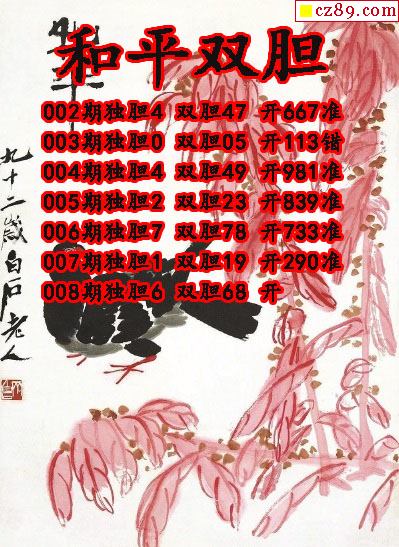 cz89.com
和平双胆
002期独胆4 双胆47 开667准
003期独胆0 双胆05 开113错
004期独胆4 双胆49 开981准
005期独胆2 双胆23 开839准
006期独胆7 双胆78 开733准
007期独胆1 双胆19 开290准
008期独胆6 双胆68 开
九十二岁白石老人